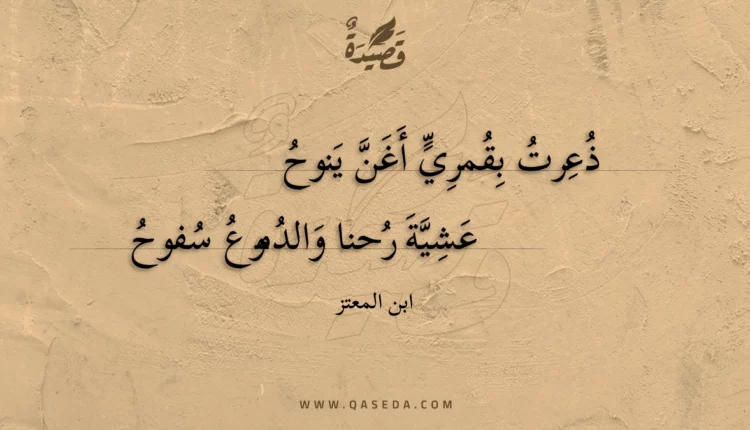 قَصِيدَةٌ
ذُعِرتُ بِقُمرِيٍّ أَغَنَّ يَنوحُ
عَشِيَّةَ رُحنا وَالدُموعُ سُفوحُ
ابن المعتز
WWW.QASEDA.COM